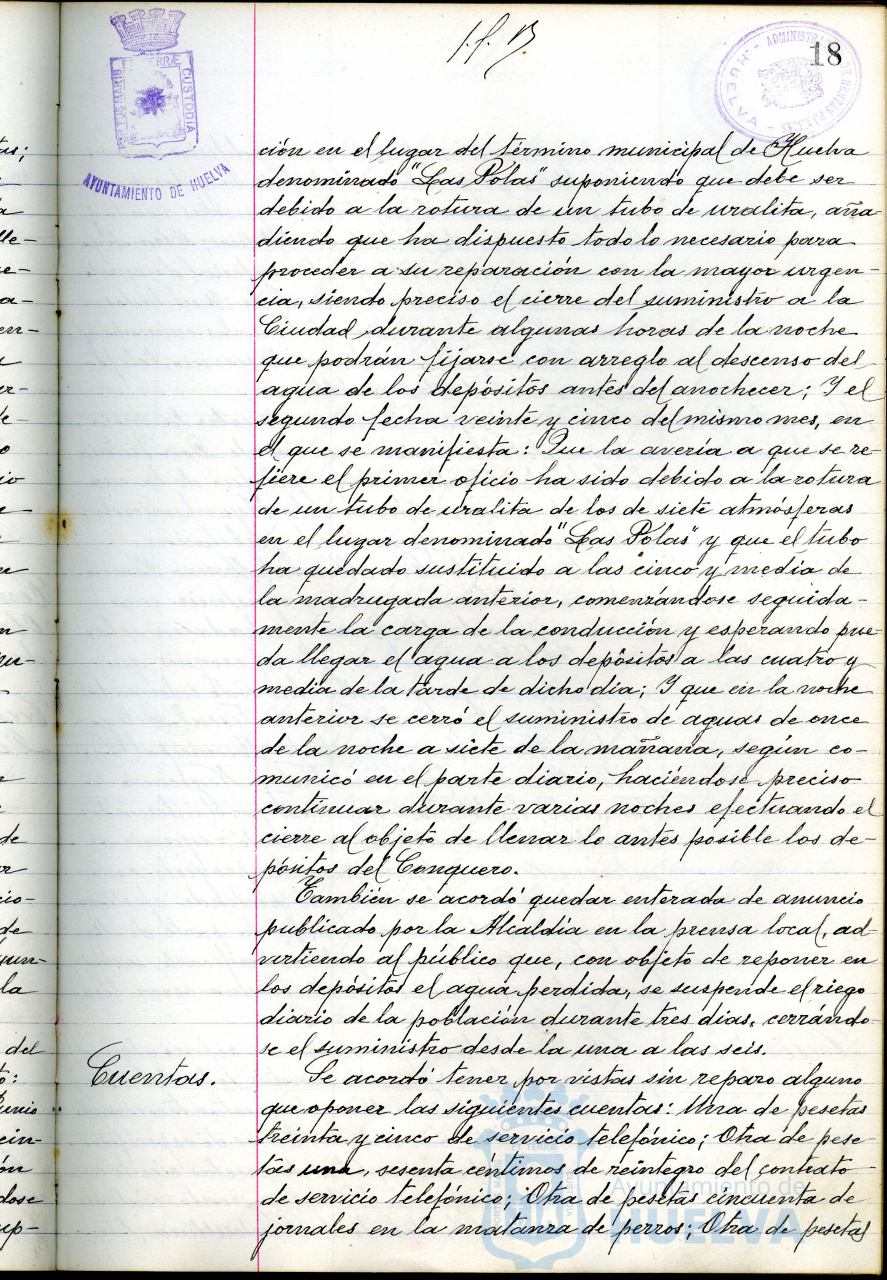 18
AYUNTAMIENTO DE HUELVA
CUSTODIA
HUELVA
ción en el lugar del término municipal de Huelva
denominado "Las Polas" suponiendo que debe ser
debido a la rotura de un tubo de uralita, aña
diendo que ha dispuesto todo lo necesario para
proceder a su reparación con la mayor urgen-
cia, siendo preciso el cierre del suministro a la
Ciudad, durante algunas horas de la noche
que podrán fijarse con arreglo al descenso del
agua de los depósitos antes del anochecer; Y el
segundo fecha veinte y cinco del mismo mes, en
el que se manifiesta: Que la avería a que se re-
fiere el primer oficio ha sido debido a la rotura
de un tubo de uralita de los de siete atmósferas
en el lugar denominado "Las Polas" y que el tubo
ha quedado sustituido a las cinco y media de
la madrugada anterior, comenzándose seguida-
mente la carga de la conducción y esperando pue-
da llegar el agua a los depósitos a las cuatro y
media de la tarde de dicho día; Y que en la noche
anterior se cerró el suministro de aguas de once
de la noche a siete de la mañana, según co-
municó en el parte diario, haciéndose preciso
continuar durante varias noches efectuando el
cierre al objeto de llenar lo antes posible los de-
pósitos del Conquero.
También se acordó quedar enterada de anuncio
publicado por la Alcaldía en la prensa local, ad-
virtiendo al público que, con objeto de reponer en
los depósitos el agua perdida, se suspende el riego
diario de la población durante tres dias, cerrándo-
se el suministro desde la una a las seis.
Cuentas.
Se acordó tener por vistas sin reparo alguno
que oponer las siguientes cuentas: Una de pesetas
treinta y cinco de servicio telefónico; Otra de pese-
tas una, sesenta céntimos de reintegro del contrato
de servicio telefónico; Otra de pesetas cincuenta de
jornales en la matanza de perros; Otra de pesetas
Ayuntamiento de
HUELVA